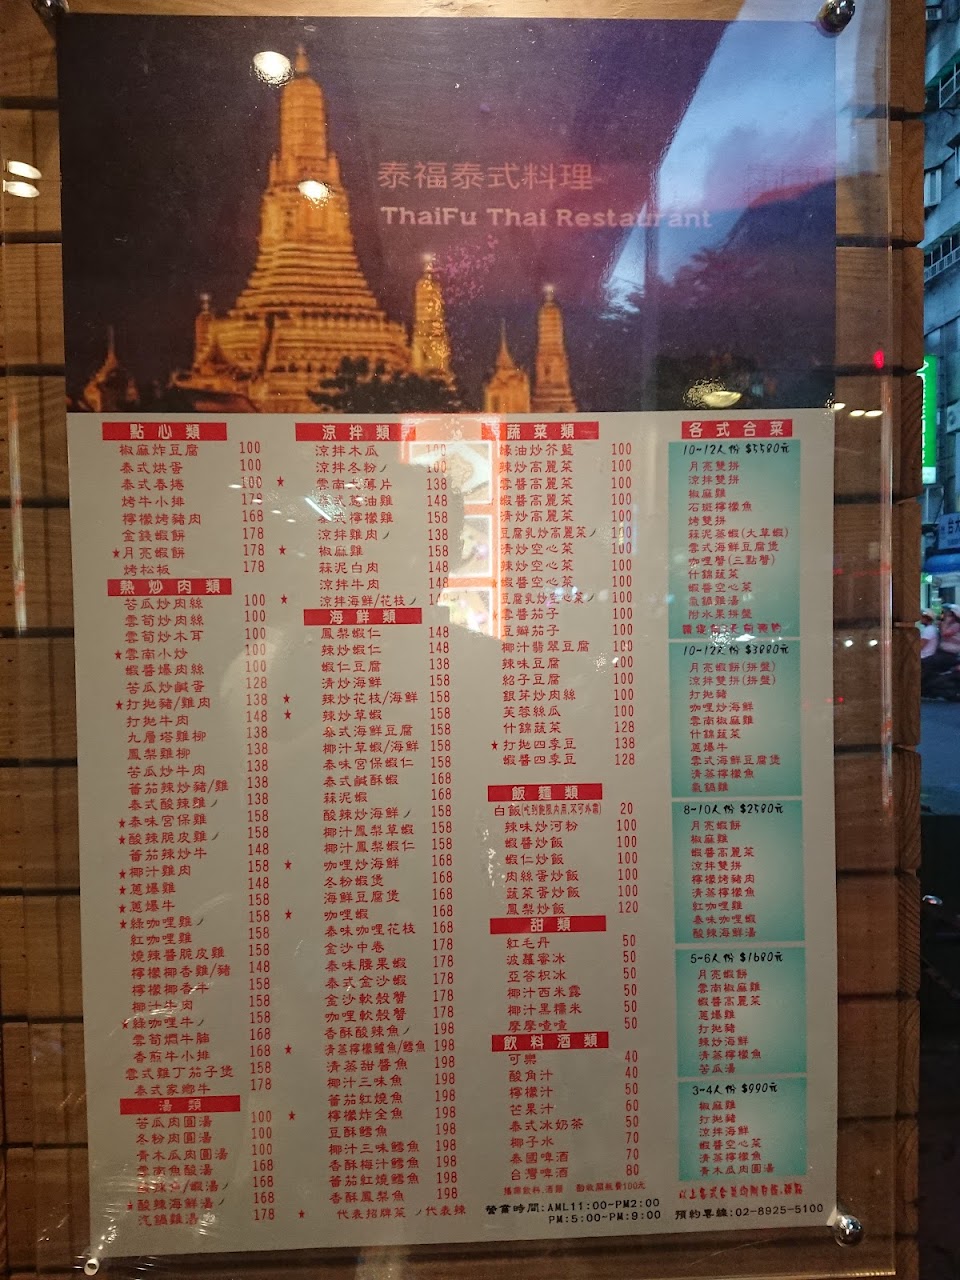 泰福泰式料理
ThaiFu Thai Restaurant
點心類
椒麻炸豆腐 100
泰式烘蛋 100
泰式春捲 100
烤牛小排 178
檸檬烤豬肉 168
金錢蝦餅 178
★月亮蝦餅 178
烤松板 178
熱炒肉類
苦瓜炒肉絲 100
雲筍炒肉絲 100
雲筍炒木耳 100
★雲南小炒 100
蝦醬爆肉絲 100
苦瓜炒鹹蛋 128
★打拋豬/雞肉 138
打拋牛肉 148
九層塔雞柳 138
鳳梨雞柳 138
苦瓜炒牛肉 138
蕃茄辣炒豬/雞 138
泰式酸辣雞ノ 138
★泰味宮保雞 158
★酸辣脆皮雞ノ 158
蕃茄辣炒牛 148
★椰汁雞肉 158
★蔥爆雞 148
★蔥爆牛 158
★綠咖哩雞ノ 158
紅咖哩雞 158
燒辣醬脆皮雞 158
檸檬椰香雞/豬 148
檸檬椰香牛 158
椰汁牛肉 158
★綠咖哩牛ノ 158
雲筍燜牛腩 168
香煎牛小排 168
雲式雞丁茄子煲 158
泰式家鄉牛 178
湯類
苦瓜肉圓湯 100
冬粉肉圓湯 100
青木瓜肉圓湯 100
雲南魚酸湯 168
168
★酸辣海鮮湯ノ 168
汽鍋雞湯 178
涼拌類
涼拌木瓜 100
涼拌冬粉ノ 100
★雲南大薄片 138
蔥油雞 148
檸檬雞 158
涼拌雞肉ノ 138
★椒麻雞 158
蒜泥白肉 148
涼拌牛肉 148
★涼拌海鮮/花枝ノ
海鮮類
鳳梨蝦仁 148
辣炒蝦仁 148
蝦仁豆腐 138
清炒海鮮 158
★辣炒花枝/海鮮 158
★辣炒草蝦 158
泰式海鮮豆腐 158
椰汁草蝦/海鮮 158
泰味宮保蝦仁 158
泰式鹹酥蝦 168
蒜泥蝦 168
酸辣炒海鮮ノ 158
椰汁鳳梨草蝦 158
椰汁鳳梨蝦仁 158
★咖哩炒海鮮 168
冬粉蝦煲 168
海鮮豆腐煲 168
★咖哩蝦 168
泰味咖哩花枝 168
金沙中卷 178
泰味腰果蝦 178
泰式金沙蝦 178
金沙軟殼蟹 178
咖哩軟殼蟹 178
香酥酸辣魚ノ 198
★清蒸檸檬鱸魚/鱈魚 198
清蒸甜醬魚 198
椰汁三味魚 198
蕃茄紅燒魚 198
★檸檬炸全魚 198
豆酥鱈魚 198
椰汁三味鱈魚 198
香酥梅汁鱈魚 198
蕃茄紅燒鱈魚 198
香酥鳳梨魚 198
★代表招牌菜 ノ代表辣
蔬菜類
蠔油炒芥藍 100
辣炒高麗菜 100
雲醬高麗菜 100
蝦醬高麗菜 100
清炒高麗菜 100
豆腐乳炒高麗菜ノ 100
清炒空心菜 100
辣炒空心菜 100
★蝦醬空心菜 100
豆腐乳炒空心菜ノ 100
★雲醬茄子 100
★豆瓣茄子 100
椰汁翡翠豆腐 100
辣味豆腐 100
紹子豆腐 100
銀芽炒肉絲 100
芙蓉絲瓜 100
什錦蔬菜 128
★打拋四季豆 138
蝦醬四季豆 128
飯麵類
白飯(吃到飽限內用,不可外帶) 20
辣味炒河粉 100
蝦醬炒飯 100
蝦仁炒飯 100
肉絲蛋炒飯 100
蔬菜蛋炒飯 100
鳳梨炒飯 120
甜類
紅毛丹 50
波羅蜜冰 50
亞答枳冰 50
椰汁西米露 50
椰汁黑糯米 50
摩摩喳喳 50
飲料酒類
可樂 40
酸角汁 40
檸檬汁 50
芒果汁 60
泰式冰奶茶 50
椰子水 70
泰國啤酒 70
台灣啤酒 80
營業時間:AM11:00-PM2:00
PM:5:00-PM:9:00
各式合菜
10-12人份 $5580元
月亮雙拼
涼拌雙拼
椒麻雞
石斑檸檬魚
烤雙拼
蒜泥蒸蝦(大草蝦)
雲式海鮮豆腐煲
咖哩蟹(三點蟹)
什錦蔬菜
蝦醬空心菜
氣鍋雞湯
附水果拼盤
10-12人份 $3880元
月亮蝦餅(拼盤)
涼拌雙拼(拼盤)
打拋豬
咖哩炒海鮮
雲南椒麻雞
什錦蔬菜
蔥爆牛
雲式海鮮豆腐煲
清蒸檸檬魚
氣鍋雞
8-10人份 $2580元
月亮蝦餅
椒麻雞
蝦醬高麗菜
涼拌雙拼
檸檬烤豬肉
清蒸檸檬魚
紅咖哩雞
泰味咖哩蝦
酸辣海鮮湯
5-6人份 $1680元
月亮蝦餅
雲南椒麻雞
蝦醬高麗菜
蔥爆雞
打拋豬
辣炒海鮮
清蒸檸檬魚
苦瓜湯
3-4人份 $990元
椒麻雞
打拋豬
涼拌海鮮
蝦醬空心菜
清蒸檸檬魚
青木瓜肉圓湯
以上泰式合菜均附白飯、甜點
預約專線:02-8925-5100